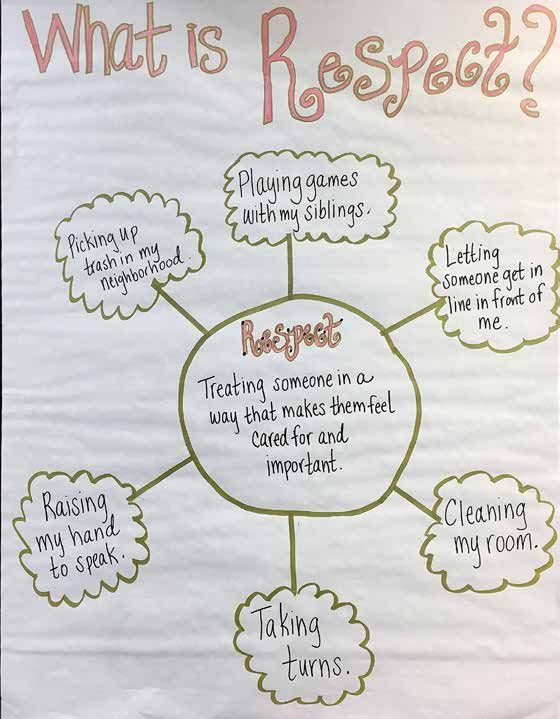 What is Respect?
Playing games
with my siblings.
Picking up
trash in my
neighborhood.
Letting
someone get in
line in front of
me.
Respect
Treating someone in a
way that makes them feel
cared for and
important.
Raising
my hand
to speak.
Cleaning
my room.
Taking
turns.